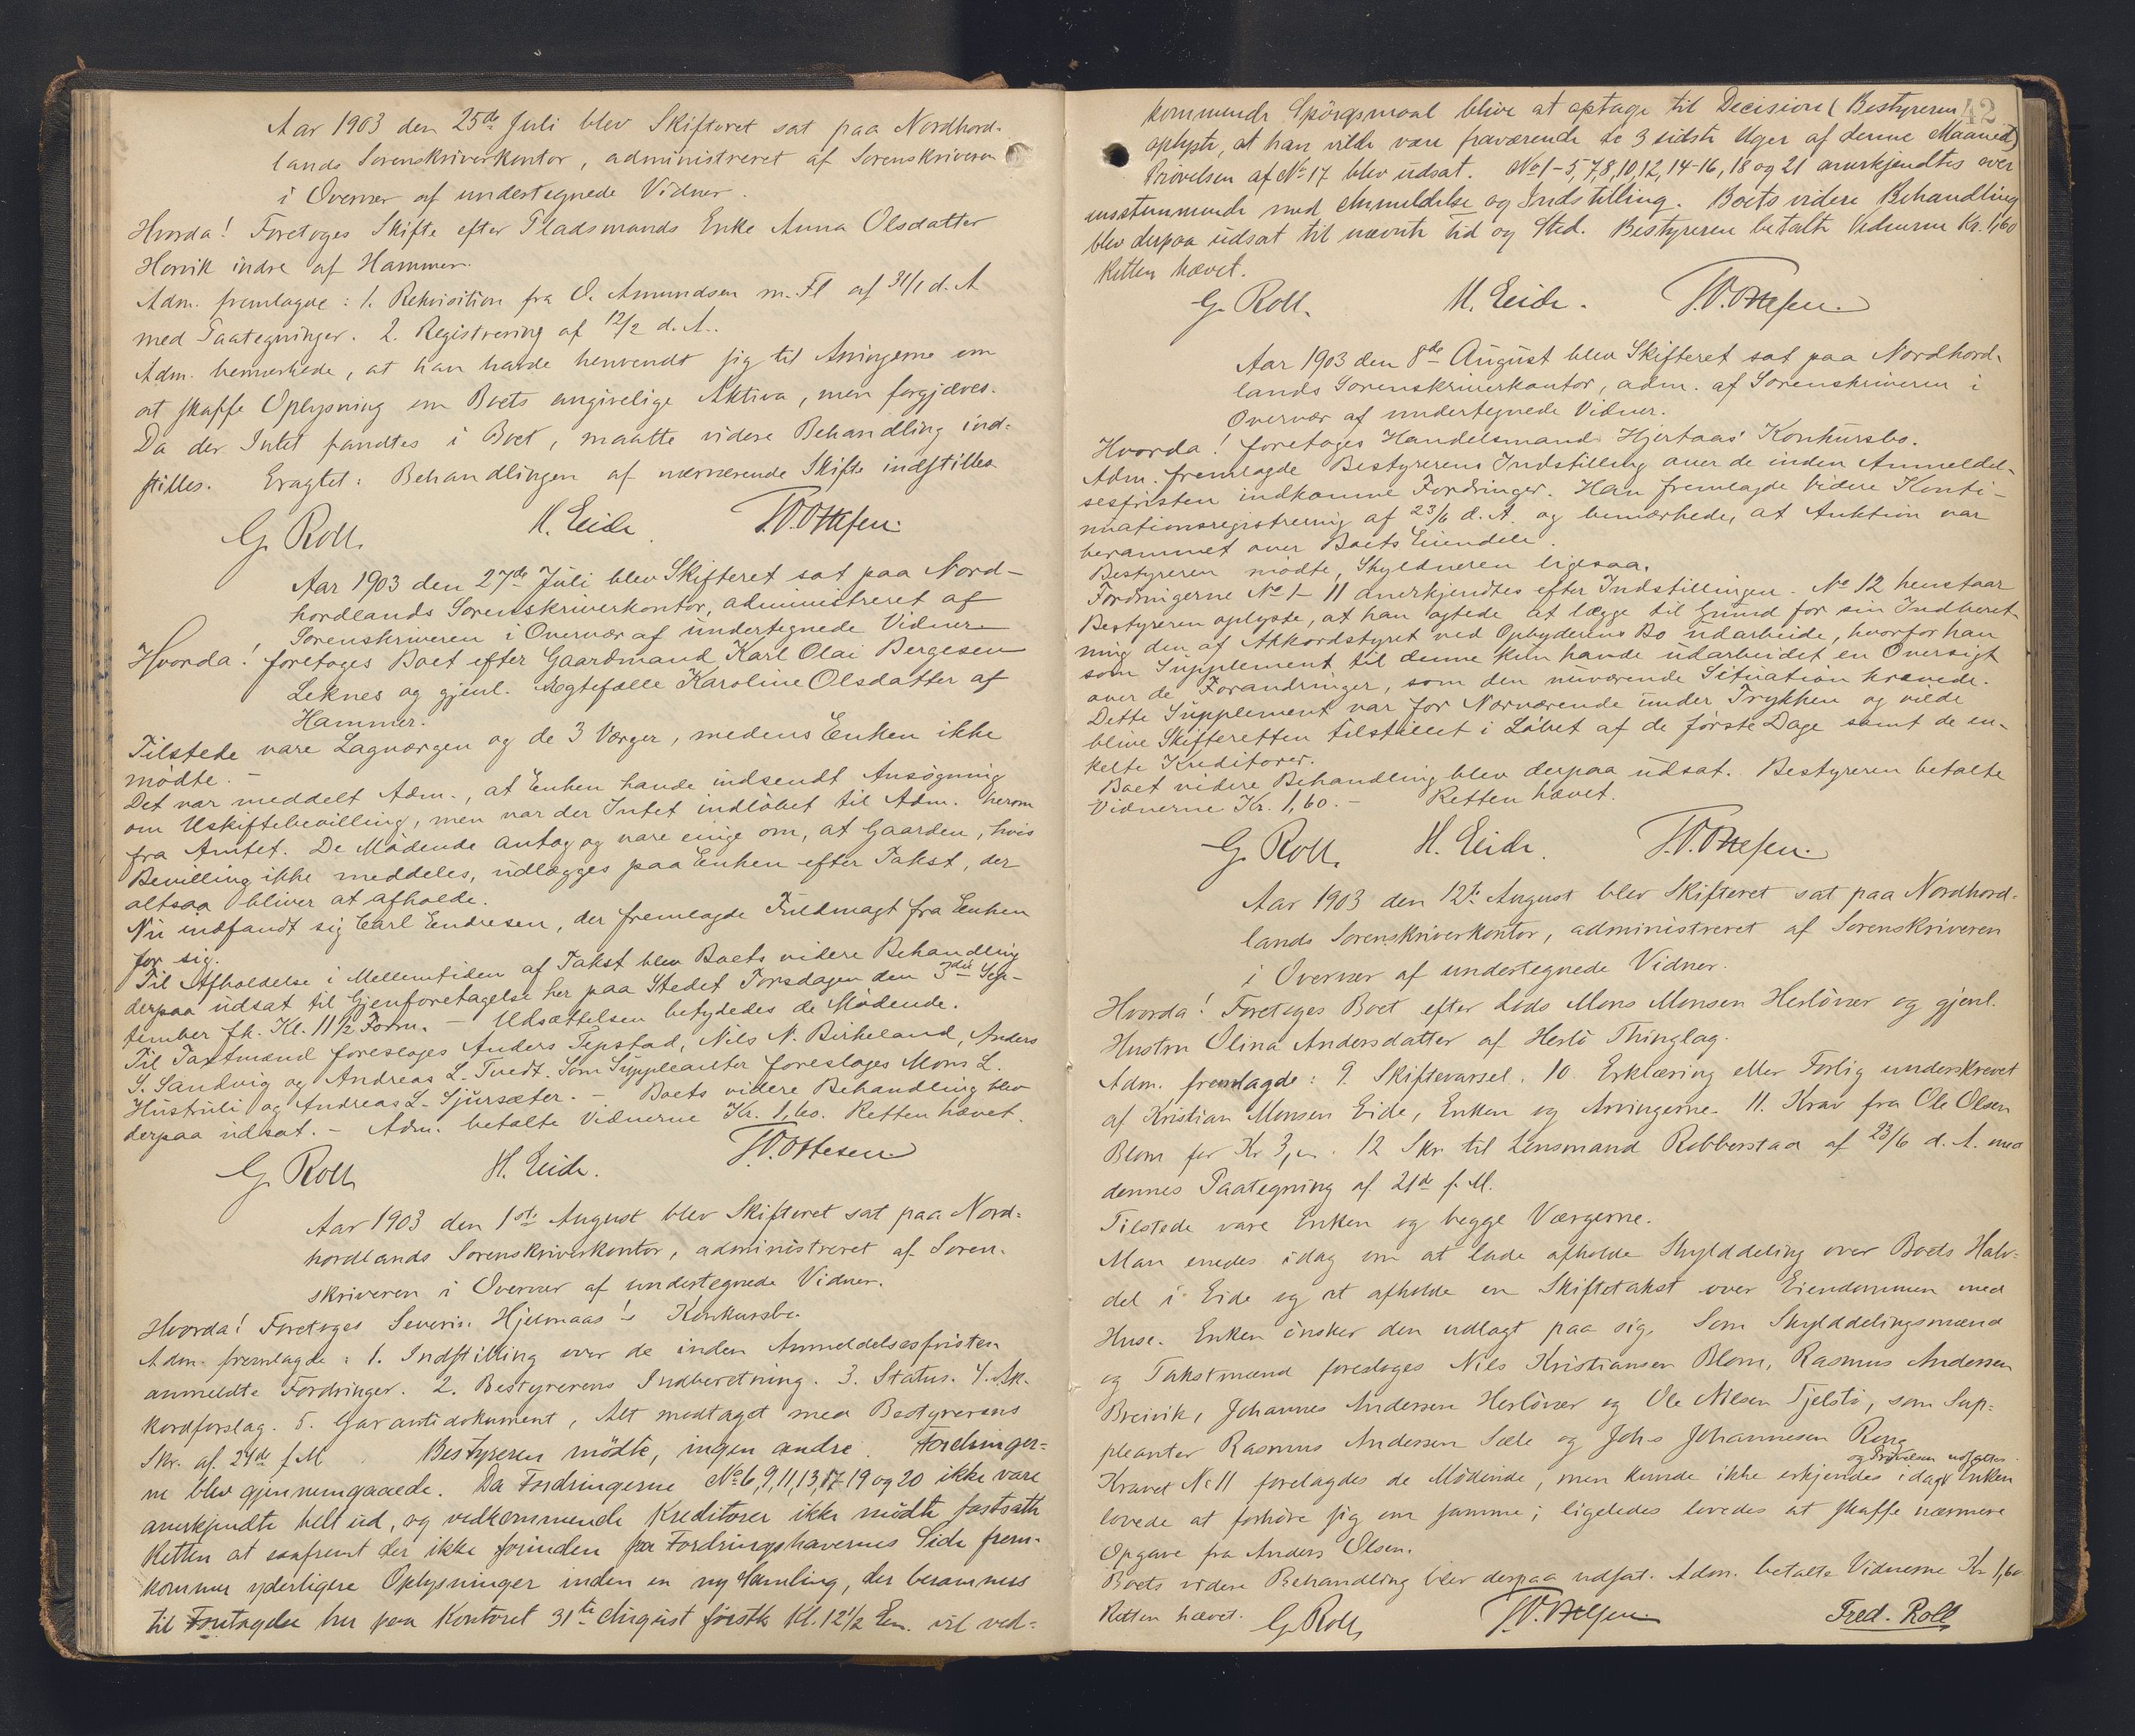 Aar 1903 den 25de Juli blev Skifteret sat paa Nordhord-
lands Sorenskriverkontor, administreret af Sorenskriveren
i Overvær af undertegnede Vidner.
Hvorda! Foretoges Skifte efter Pladsmands Enke Anna Olsdatter
Horvik indre af Hammer.
Adm. fremlagde: 1. Rekvisition fra O. Amundsen m. Fl af 31/1 d. A
med Paategninger. 2. Registrering af 12/2 d. A..
Adm. bemærkede, at han havde henvendt sig til Arvingerne om
at skaffe Oplysning om Boets angivelige Aktiva, men forgjæves.
Da der Intet fandtes i Boet, maatte videre Behandling ind-
stilles. Eragtet: Behandlingen af nærværende Skifte indstilles.
G. Roll. H. Eide. T.V. Ottesen.
Aar 1903 den 27de Juli blev Skifteret sat paa Nord-
hordlands Sorenskriverkontor, administreret af
Sorenskriveren i Overvær af undertegnede Vidner
Hvorda! foretoges Boet efter Gaardmand Karl Olai Bergesen
Leknes og gjenl. Ægtefælle Karoline Olsdatter af
Hammer.
Tilstede vare Lagværgen og de 3 Værger, medens Enken ikke
mödte. –
Det var meddelt Adm., at Enken havde indsendt Ansögning
om Uskiftebevilling, men var der Intet indlöbet til Adm. herom
fra Amtet. De Mödende antog og vare enige om, at Gaarden, hvis
Bevilling ikke meddeles, udlægges paa Enken efter Takst, der
altsaa bliver at afholde.
Nu indfandt sig Carl Endresen, der fremlagde Fuldmagt fra Enken
for sig.
Til Afholdelse i Mellemtiden af Takst blev Boets videre Behandling
derpaa udsat til Gjenforetagelse her paa Stedet Torsdagen den 3die Sep-
tember fk. Kl. 11 1/2 Form. – Udsættelsen betydedes de Mödende.
Til Taxtmænd foresloges Anders Tepstad, Nils N. Birkeland, Anders
S. Sandvig og Andreas L. Tvedt. Som Suppleanter foresloges Mons L.
Hustruli og Andreas L. Sjursæter. – Boets videre Behandling blev
derpaa udsat. – Adm. betalte Vidnerne Kr. 1,60. Retten hævet.
G. Roll H. Eide. T.V. Ottesen
Aar 1903 den 1ste August blev Skifteret sat paa Nord-
hordlands Sorenskriverkontor, administreret af Soren-
skriveren i Overvær af undertegnede Vidner.
Hvorda! Foretoges Severin Hjelmaas's Konkursbo.
Adm. fremlagde: 1. Indstilling over de inden Anmeldelsesfristen
anmeldte Fordringer. 2. Bestyrerens Indberetning. 3. Status. 4. Ak-
kordforslag. 5. Garantidokument, Alt modtaget med Bestyrerens
Skr. af 29de f M Bestyreren mödte, ingen andre. Fordringer-
ne blev gjennemgaaede. Da Fordringerne No 6, 9, 11, 13, 17, 19 og 20 ikke vare
anerkjendte helt ud, og vedkommende Kreditorer ikke mödte fastsatte
Retten at saafremt der ikke forinden fra Fordringshavernes Side frem-
kommer yderligere Oplysninger inden en ny Samling, der berammes
til Foretagelse her paa Kontoret 31te August förstk Kl. 12 1/2 Em. vil ved-
42
kommende Spörgsmaal blive at optage til Decision (Bestyreren
oplyste, at han vilde være fraværende de 3 sidste Uger af denne Maaned)
Prövelsen af No 17 blev udsat. No 1-5, 7, 8, 10, 12, 14-16, 18 og 21 anerkjendtes over
ensstemmende med Anmeldelse og Indstilling. Boets videre Behandling
blev derpaa udsat til nævnte Tid og Sted. Bestyreren betalte Vidnerne Kr. 1,60
Retten hævet.
G. Roll. H. Eide. T.V. Ottesen.
Aar 1903 den 8de August blev Skifteret sat paa Nordhord-
lands Sorenskriverkontor, adm. af Sorenskriveren i
Overvær af undertegnede Vidner.
Hvorda! foretoges Handelsmand Hjertaas' Konkursbo.
Adm. fremlagde Bestyrerens Indstilling over de inden Anmeldel-
sesfristen indkomne Fordringer. Han fremlagde videre Konti-
nuationsregistrering af 23/6 d. A. og bemærkede, at Auktion var
berammet over Boets Eiendele.
Bestyreren mödte, Skyldneren ligesaa.
Fordringerne No 1-11 anerkjendtes efter Indstillingen. No 12 henstaar
Bestyreren oplyste, at han agtede at lægge til Grund for sin Indberet-
ning den af Akkordstyret ved Opbyderens Bo udarbeide, hvorfor han
som Supplement til denne kun havde udarbeidet en Oversigt
over de Forandringer, som den nuværende Situation krævede.
Dette Supplement var for Nærværende under Trykken og vilde
blive Skifteretten tilstillet i Löbet af de förste Dage samt de en-
kelte Kreditorer.
Boet videre Behandling blev derpaa udsat. Bestyreren betalte
Vidnerne Kr. 1,60. – Retten hævet.
G. Roll. H. Eide. T.V. Ottesen.
Aar 1903 den 12te August blev Skifteret sat paa Nordhord-
lands Sorenskriverkontor, administreret af Sorenskriveren
i Overvær af undertegnede Vidner.
Hvorda! Foretoges Boet efter Lods Mons Monsen Herlövær og gjenl.
Hustru Olina Andersdatter af Herlö Thinglag.
Adm. fremlagde: 9. Skiftevarsel. 10. Erklæring eller Forlig underskrevet
af Kristian Monsen Eide, Enken og Arvingerne. 11. Krav fra Ole Olsen
Blom for Kr 3,. 12 Skr. til Lensmand Robberstad af 23/6 d. A. med
dennes Paategning af 21de f. M.
Tilstede vare Enken og begge Værgerne.
Man enedes idag om at lade afholde Skylddeling over Boets Halv-
del i Eide og at afholde en Skiftetakst over Eiendommen med
Huse. Enken önsker den udlagt paa sig. Som Skylddelingsmænd
og Takstmænd foresloges Nils Kristiansen Blom, Rasmus Andersen
Breivik, Johannes Andersen Herlövær og Ole Nilsen Tjelstö, som Sup-
pleanter Rasmus Andersen Sæle og Johs Johannesen Rong
og Prövelsen udsattes.
Kravet No 11 forelagdes de Mödende, men kunde ikke erkjendes idag Enken
lovede at forhöre sig om samme; ligeledes lovedes at skaffe nærmere
Opgave fra Anders Olsen.
Boets videre Behandling blev derpaa udsat. Adm. betalte Vidnerne Kr 1,60
Retten hævet. G. Roll, T.V. Ottesen. Fred. Roll